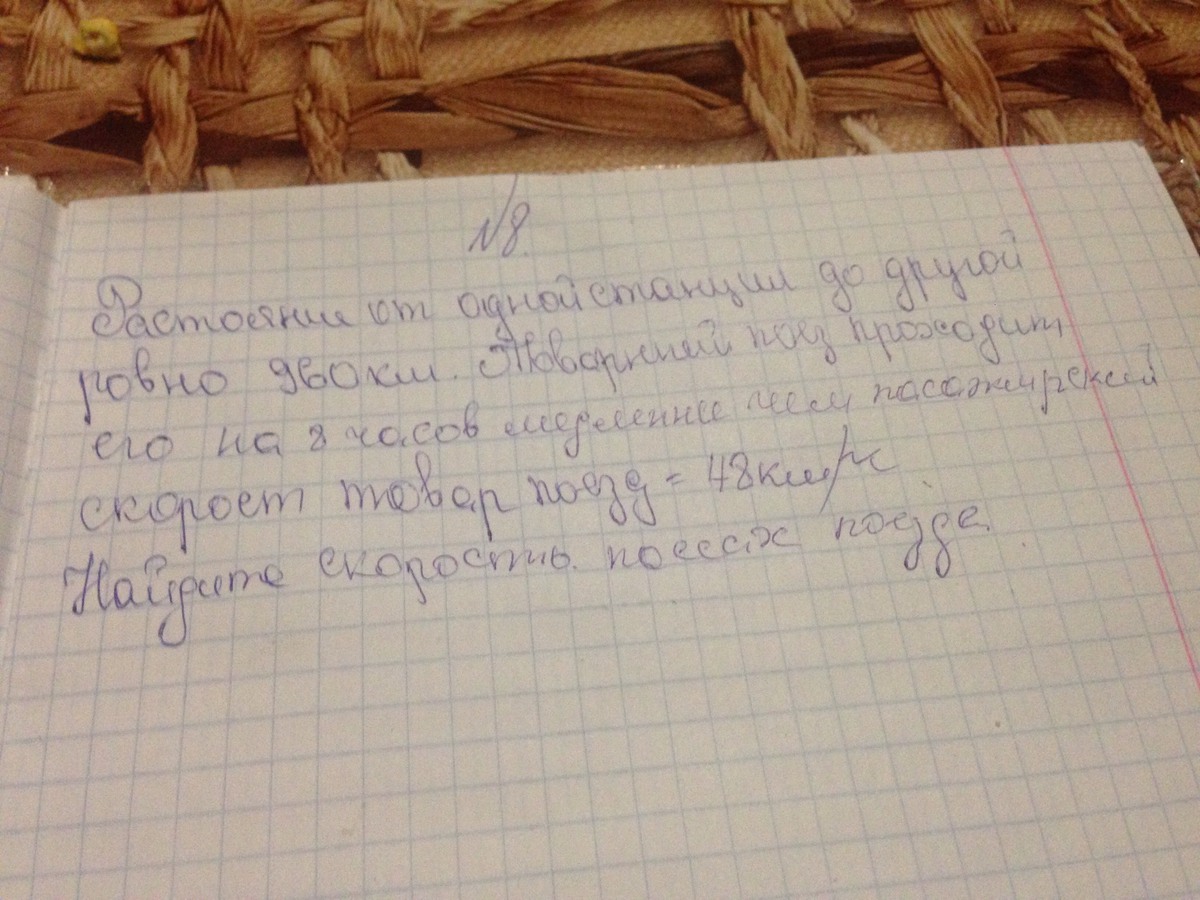 №8.
Растояние от одной станции до другой
ровно 960 км. Товарний поез проходит
его на 8 часов медленнее чем пасажирский
скорост товар поезд = 48км/ч
Найдите скорость пассаж поезда.